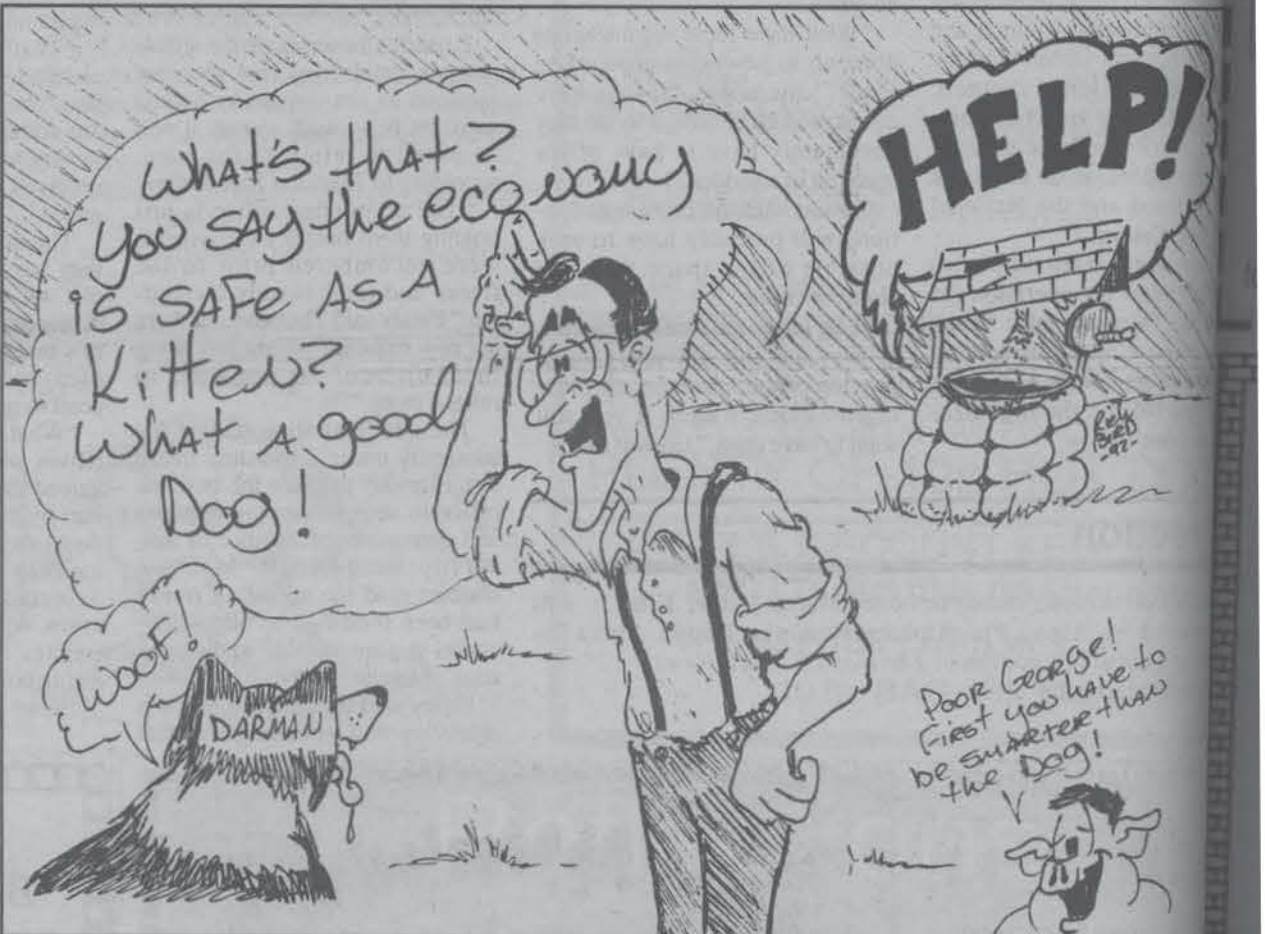 What's that?
You say the economy
is safe as a
Kitten?
What a good
Dog!
HELP!
Woof!
DARMAN
Rich
Bird
-92-
Poor George!
First you have to
be smarter than
the Dog!